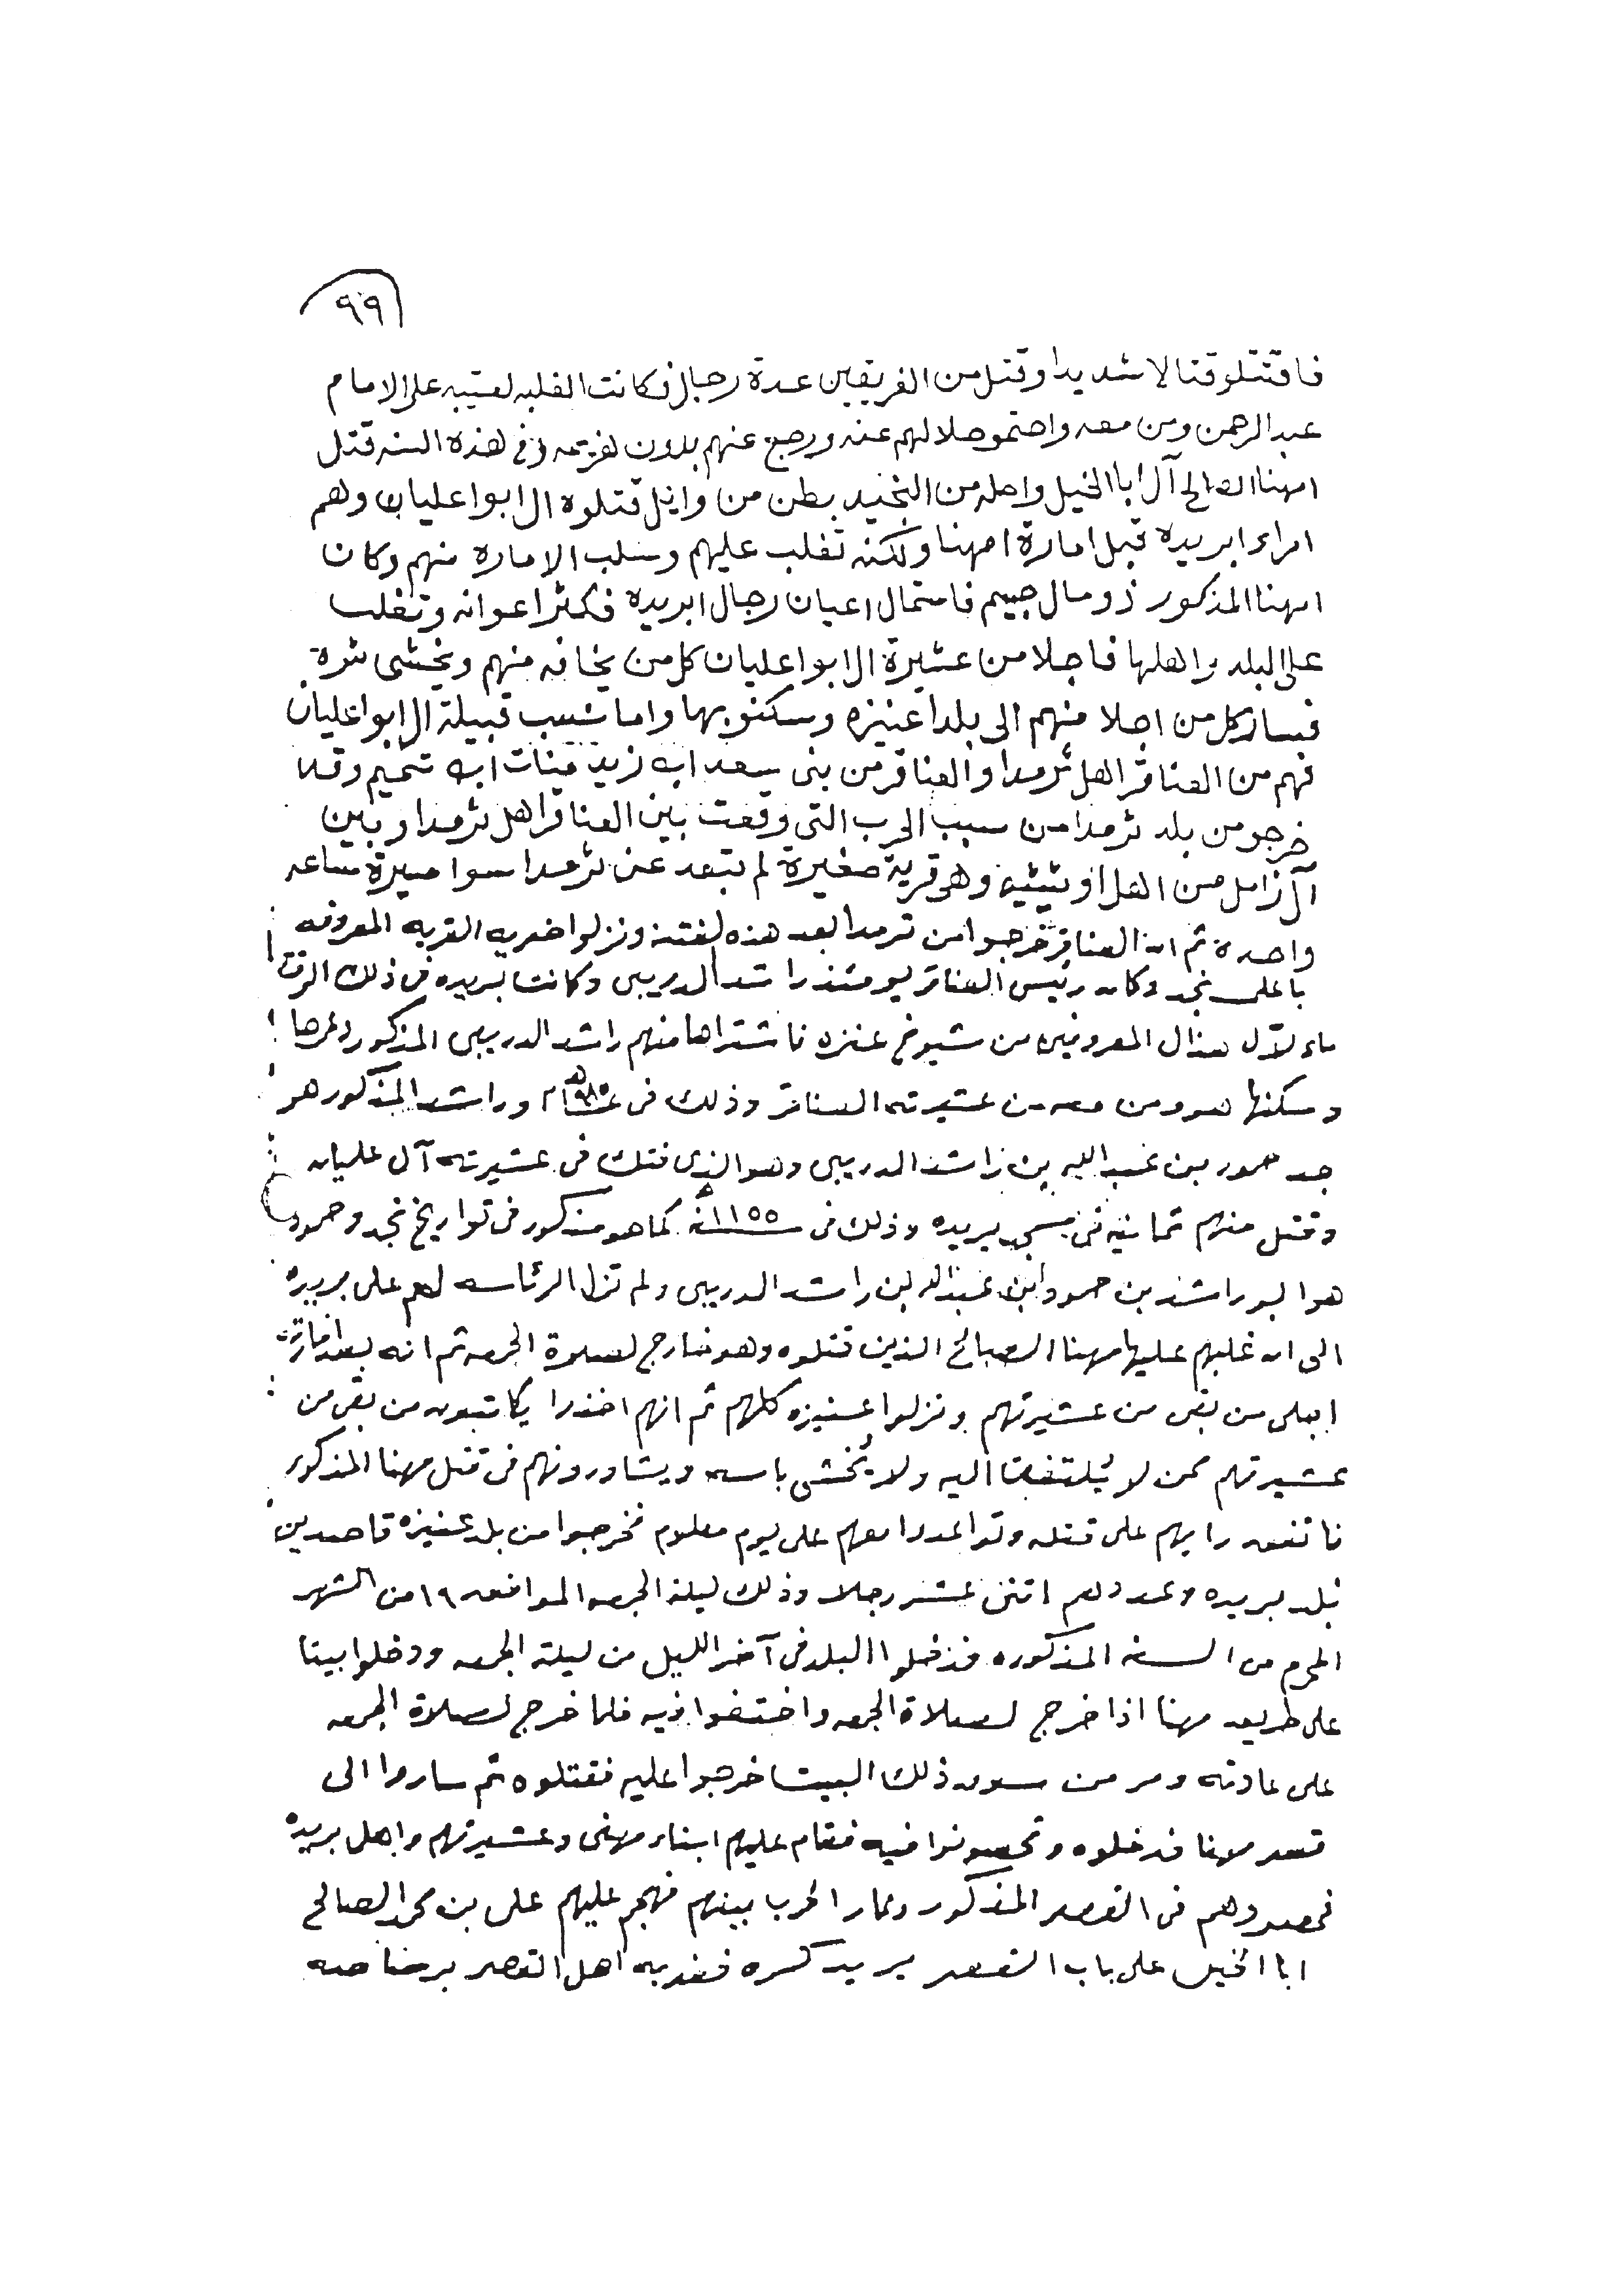 ٩٩
فاقتتلو قتالا شديدا وقتل من الفريقين عدة رجال فكانت الغلبه لعتيبه على الامام
عبدالرحمن ومن معه واحتمو حلالهم عنه ورجع عنهم بدون هزيمه وفي هذه السنه قتل
امهنا الصالح آل ابا الخيل واصله من النجيد بطن من وايل قتلوه ال ابوا عليان وهم
امراء ابريده قبل امارة امهنا ولكنه تغلب عليهم وسلب الاماره منهم وكان
امهنا المذكور ذو مال جسيم فاستمال اعيان رجال ابريده فكثر اعوانه وتغلب
على البلد واهلها فاجلا من عشيرة ال ابوا عليان كل من يخافه منهم ويخشى شره
فسار كل من اجلا منهم الى بلد اعنيزه وسكنو بها واما نسب قبيلة ال ابوا عليان
فهم من العناقر اهل ثرمدا والعناقر من بني سعد ابن زيد منات ابن تميم وقد
خرجو من بلد ثرمدا من سبب الحرب التي وقعت بين العناقر اهل ثرمدا وبين
آل زامل من اهل اوثيثيه وهي قرية صغيرة لم تبعد عن ثرمدا سوا مسيرة ساعه
واحدة ثم ان العناقر خرجوا من ثرمدا بعد هذه لفتنه ونزلوا ضريه القريه المعروفه
باعلى نجد وكان رئيس العناقر يومئذ راشد الدريبى وكانت بريده فى ذلك الوقت
ماء لآل هذال المعروفين من شيوخ عنزه فاشتراها منهم راشد الدريبى المذكور وعمرها
وسكنها هو ومن معه من عشيرته العناقر وذلك فى عام ٩٨٥ه وراشد المذكور هو
جد حمود بن عبدالله بن راشد الدريبى وهو الذى فتك فى عشيرته آل عليان
وقتل منهم ثمانيه فى مسجد بريده وذلك فى سنة ١١٥٥ه كما هو مذكور فى تواريخ نجد وحمود
هوا بو راشد بن حمود ابن عبدالله بن راشد الدريبى ولم تزل الرئاسه لهم على بريده
الى ان غلبهم عليها مهنا الصالح الذين قتلوه وهو خارج لصلاة الجمعه ثم انه بعد امارته
اجلى من بقى من عشيرتهم ونزلوا عنيزه كلهم ثم انهم اخذوا يكاتبون من بقى من
عشيرتهم ممن لا يُلتفت اليه ولا يُخشى باسه ويشاورونهم فى قتل مهنا المذكور
فاتفق رايهم على قتله وتواعدوا معهم على يوم معلوم فخرجوا من بلد عنيزه قاصدين
بلد بريده وعددهم اثنى عشر رجلا وذلك ليلة الجمعه الموافق ١٩ من الشهر
المحرم من السنه المذكوره فدخلوا البلد فى آخر الليل من ليلة الجمعه ودخلوا بيتا
على طريق مهنا اذا خرج لصلاة الجمعه واختفوا فيه فلما خرج لصلاة الجمعه
على عادته ومر من سوى ذلك البيت خرجوا عليه فقتلوه ثم ساروا الى
قصر مهنا فدخلوه وتحصونوا فيه فقام عليهم ابناء مهنى وعشيرتهم واهل بريده
فحصروهم فى القصر المذكور وثار الحرب بينهم فهجم عليهم على بن محمد الصالح
ابا الخيل على باب القصر يريد كسره فضربه اهل القصر برصاصه